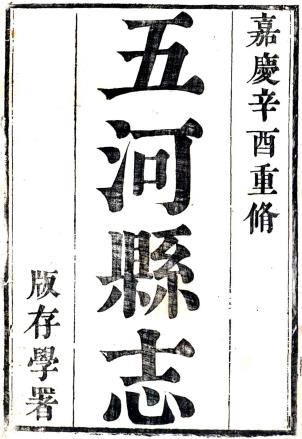 嘉慶辛酉重脩
五河縣志
版存學署